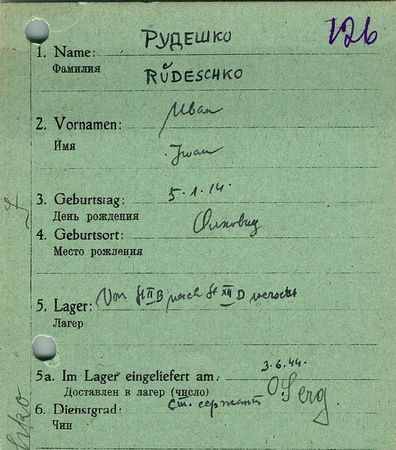 126
РУДЕШКО
1. Name:
Фамилия
RŬDESCHKO
2. Vornamen: Иван
Имя
Iwan
3. Geburtstag: 5.1.14.
День рождения
4. Geburtsort:
Место рождения
5. Lager: Von St II B nach St XII D versetzt
Лагер
5a. Im Lager eingeliefert am: 3.6.44.
Доставлен в лагер (число)
6. Dienstgrad: Ст. сержант O Serg.
Чин